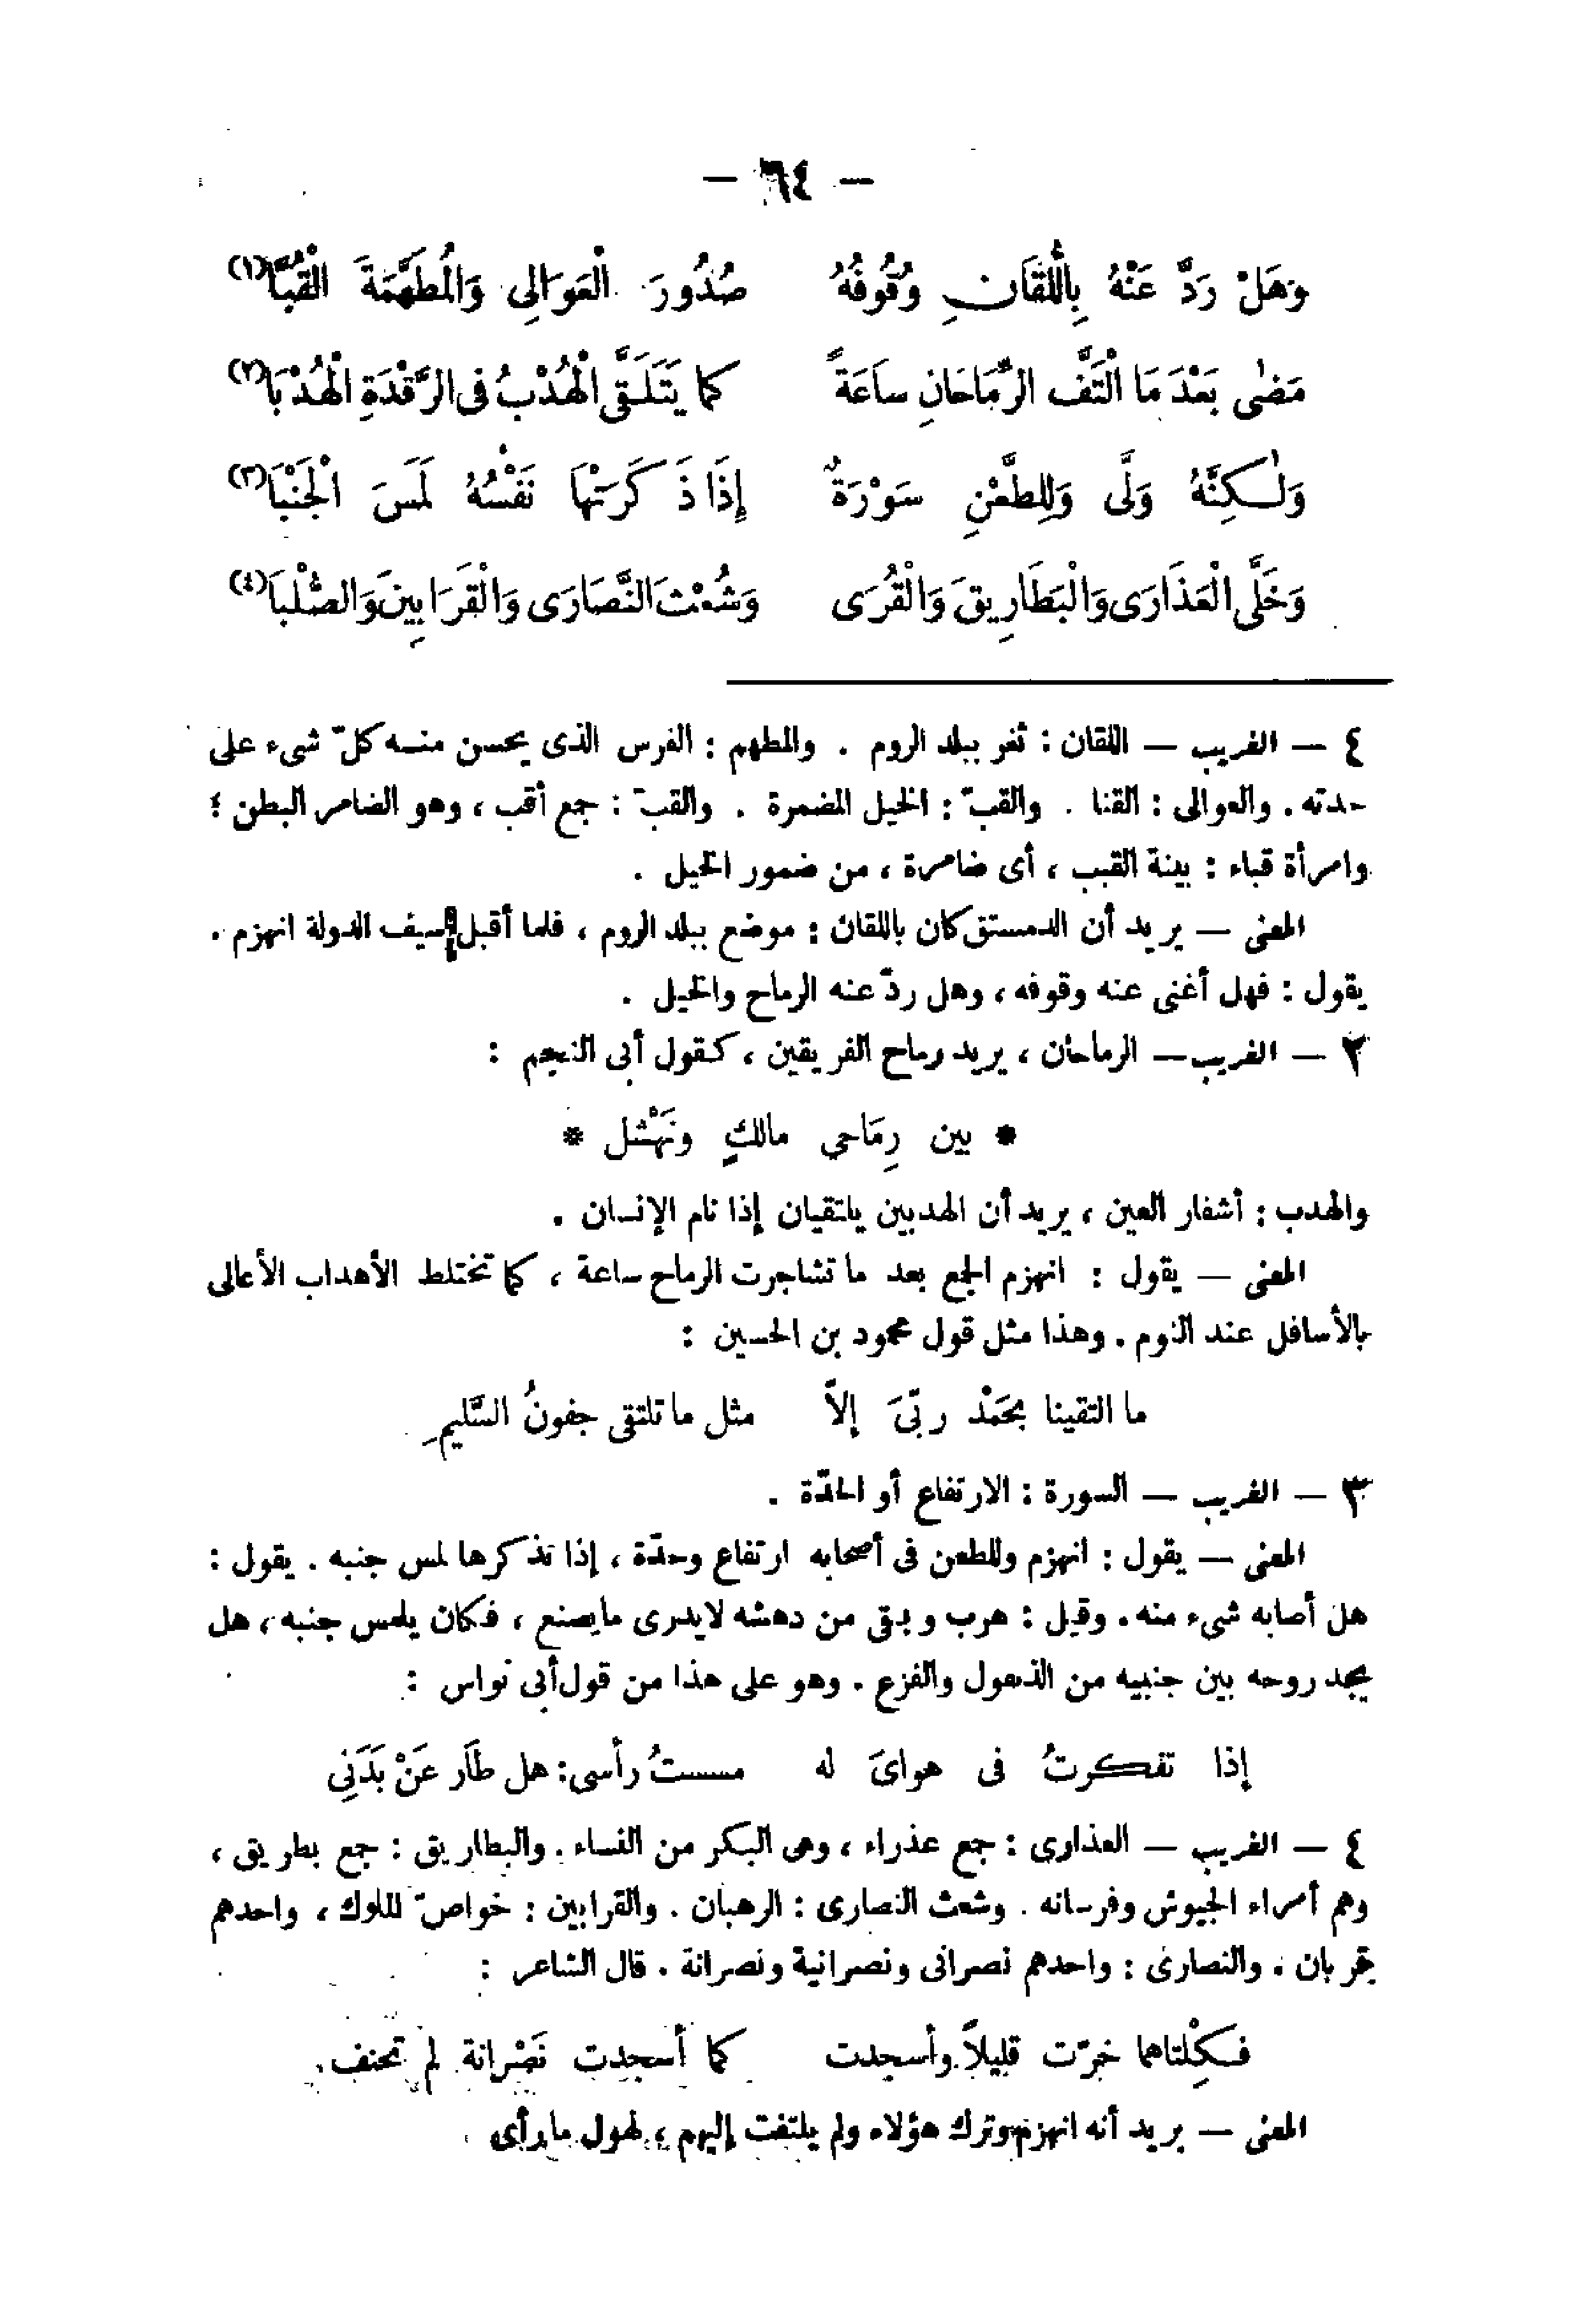 — ٦٤ —
وَهَلْ رَدَّ عَنْهُ بِاللُّقَانِ وُقُوفُهُ صُدُورَ الْعَوَالِى وَالْمُطَهَّمَةَ الْقُبَّا(١)
مَضٰى بَعْدَ مَا الْتَفَّ الرِّمَاحَانِ سَاعَةً كما يَتَلَقَّى الْهُدْبُ فى الرَّقْدَةِ الْهُدْبَا(٢)
وَلٰكِنَّهُ وَلَّى وَلِلطَّعْنِ سَوْرَةٌ إِذَا ذَكَرَتْهَا نَفْسُهُ لَمَسَ الْجَنْبَا(٣)
وَخَلَّى الْعَذَارَى وَالْبَطَارِيقَ وَالْقُرَى وَشُعْثَ النَّصَارَى وَالْقَرَابِينَ وَالصُّلْبَا(٤)
٤ — الغريب — اللقان : ثغر ببلد الروم . والمطهم : الفرس الذى يحسن منه كلّ شىء على
حدته . والعوالى : القنا . والقبّ : الخيل المضمرة . والقبّ : جمع أقب ، وهو الضامر البطن ؛
وامرأة قباء : بينة القبب ، أى ضامرة ، من ضمور الخيل .
المعنى — يريد أن الدمستق كان باللقان : موضع ببلد الروم ، فلما أقبل سيف الدولة انهزم .
يقول : فهل أغنى عنه وقوفه ، وهل ردّ عنه الرماح والخيل .
٢ — الغريب — الرماحان ، يريد رماح الفريقين ، كقول أبى النجم :
* بين رِمَاحي مالكٍ ونَهْشل *
والهدب : أشفار العين ، يريد أن الهدبين يلتقيان إذا نام الإنسان .
المعنى — يقول : انهزم الجمع بعد ما تشاجرت الرماح ساعة ، كما تختلط الأهداب الأعالى
بالأسافل عند النوم . وهذا مثل قول محمود بن الحسين :
ما التقينا بحَمْد ربّىَ إلاّ مثل ما تلتقى جفونُ السَّليمِ
٣ — الغريب — السورة : الارتفاع أو الحدّة .
المعنى — يقول : انهزم وللطعن فى أصحابه ارتفاع وحدّة ، إذا تذكرها لمس جنبه . يقول :
هل أصابه شىء منه . وقيل : هرب وبقى من دهشه لايدرى مايصنع ، فكان يلمس جنبه ، هل
يجد روحه بين جنبيه من الذهول والفزع . وهو على هذا من قول أبى نواس :
إذا تفكرتُ فى هواىَ له مسستُ رأسى: هل طَار عَنْ بَدَنِى
٤ — الغريب — العذارى : جمع عذراء ، وهى البكر من النساء . والبطاريق : جمع بطريق ،
وهم أمراء الجيوش وفرسانه . وشعث النصارى : الرهبان . والقرابين : خواصّ الملوك ، واحدهم
قربان . والنصارى : واحدهم نصرانى ونصرانية ونصرانة . قال الشاعر :
فكِلْتاهما خرّت قليلاً وأسجدت كما أسجدت نَصْرانة لم تحنف .
المعنى — يريد أنه انهزم وترك هؤلاء ولم يلتفت إليهم ، لهول ما رأى .